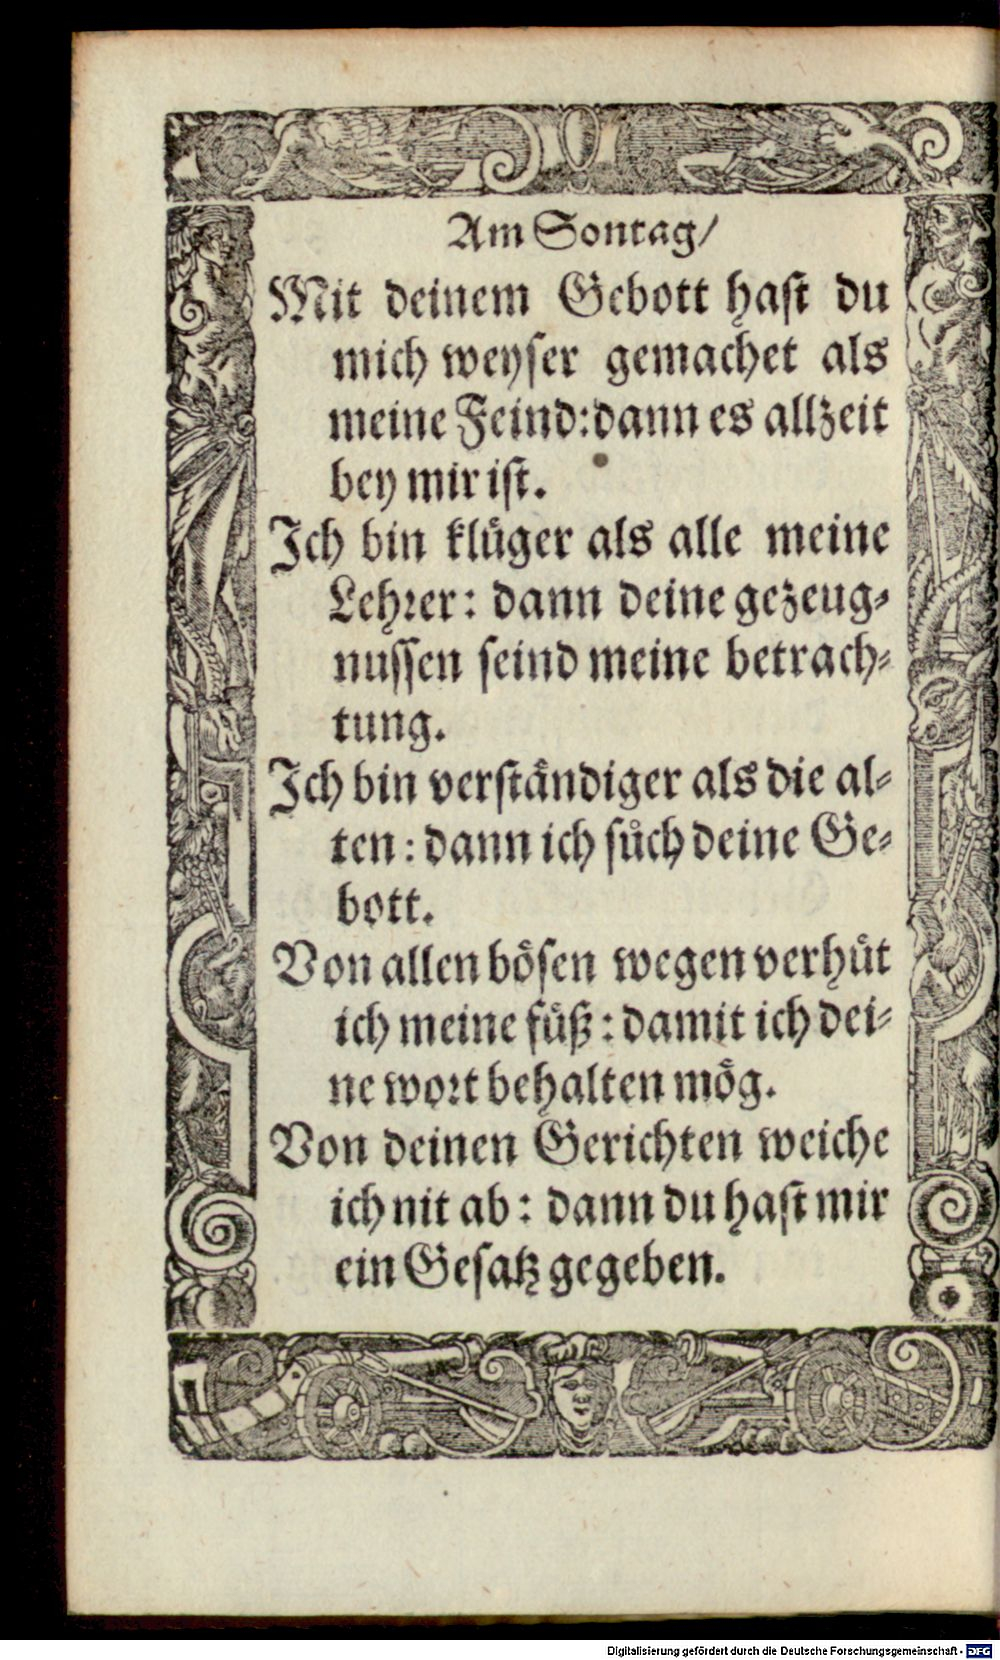 Am Sontag/
Mit deinem Gebott hast du
mich weyser gemachet als
meine Feind: dann es allzeit
bey mir ist.
Ich bin klüger als alle meine
Lehrer: dann deine gezeug-
nussen seind meine betrach-
tung.
Ich bin verständiger als die al-
ten: dann ich sůch deine Ge-
bott.
Von allen bösen wegen verhüt
ich meine füß: damit ich dei-
ne wort behalten mög.
Von deinen Gerichten weiche
ich nit ab: dann du hast mir
ein Gesatz gegeben.
Digitalisierung gefördert durch die Deutsche Forschungsgemeinschaft - DFG